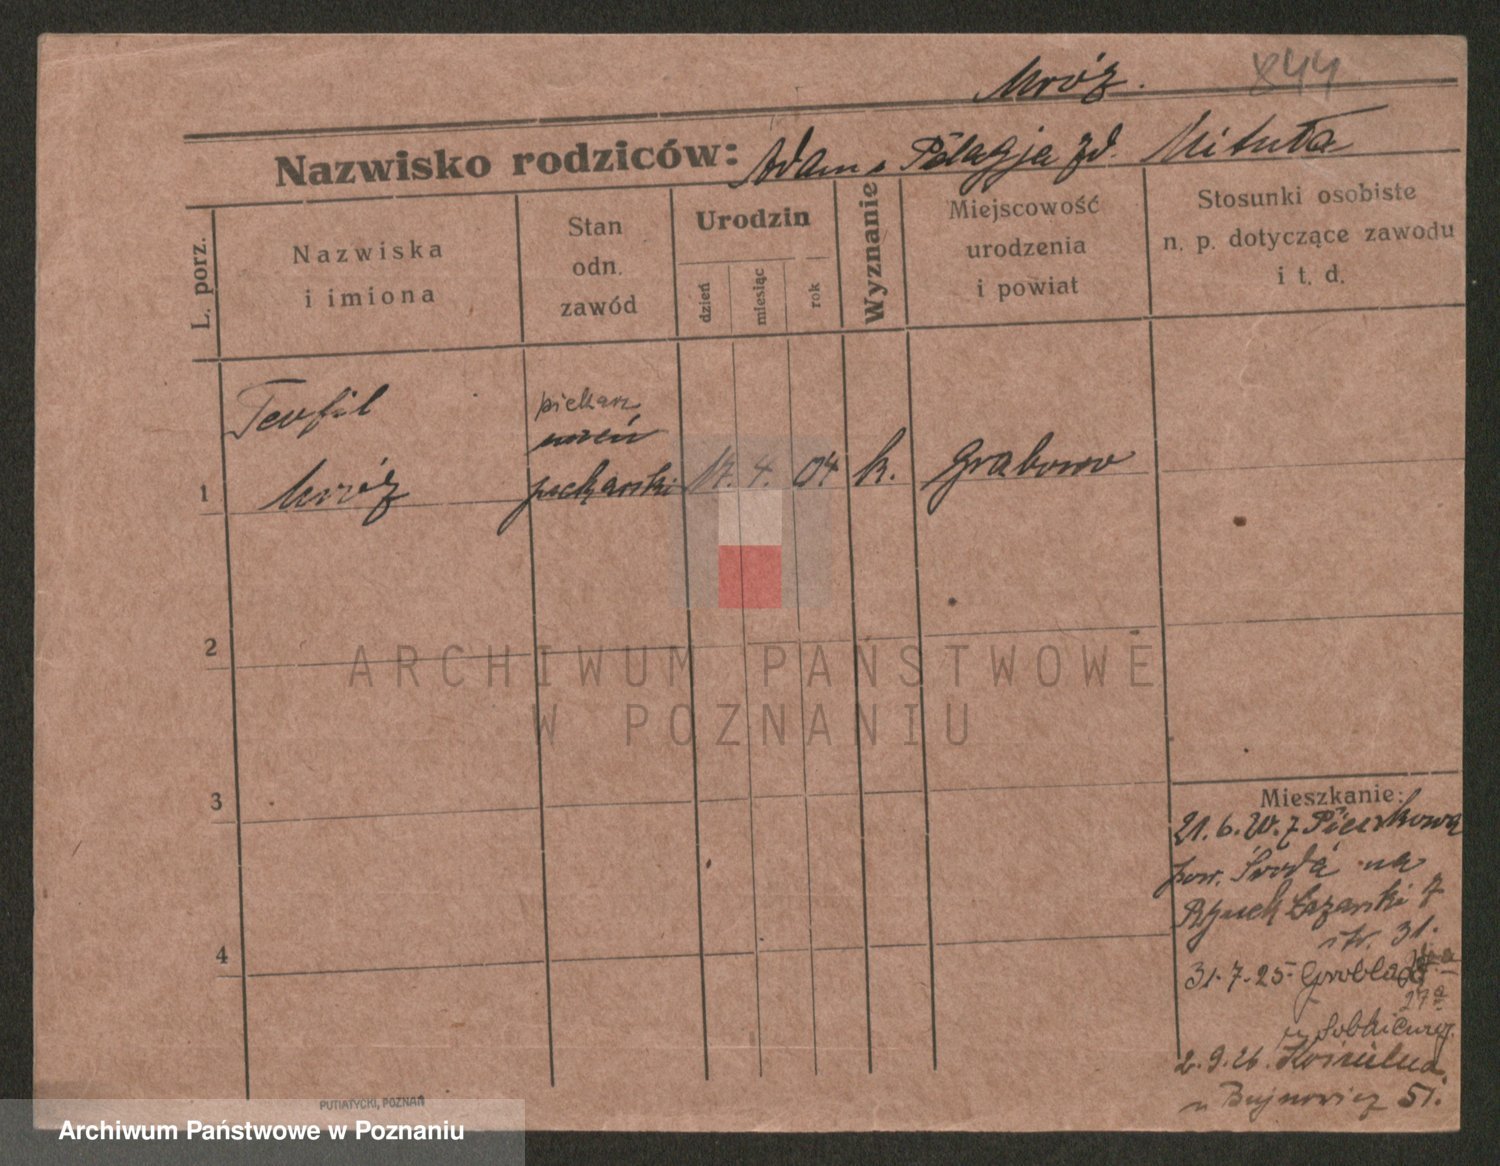 Mróz.
844
Nazwisko rodziców: Adam. Pelagja zd. Mituła
L. porz.
Nazwiska
i imiona
Stan
odn.
zawód
Urodzin
dzień
miesiąc
rok
Wyznanie
Miejscowość
urodzenia
i powiat
Stosunki osobiste
n. p. dotyczące zawodu
i t. d.
Teofil
piekarz
uczeń
1 Mróz piekarski 17. 4. 04 k. Grabowo
2
3
4
Mieszkanie:
21.6.20. z
pow. Środa na
Rynek Łazarski 7
31.
31.7.25 Grobla
27a
2.9.26.
u Bujnowicz 51.
ARCHIWUM PAŃSTWOWE
W POZNANIU
PUTIATYCKI, POZNAŃ
Archiwum Państwowe w Poznaniu